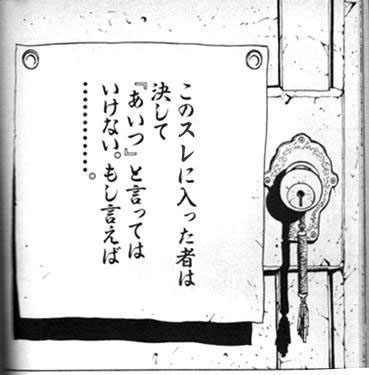 このスレに入った者は
決して
『あいつ』と言っては
いけない。もし言えば
…………。